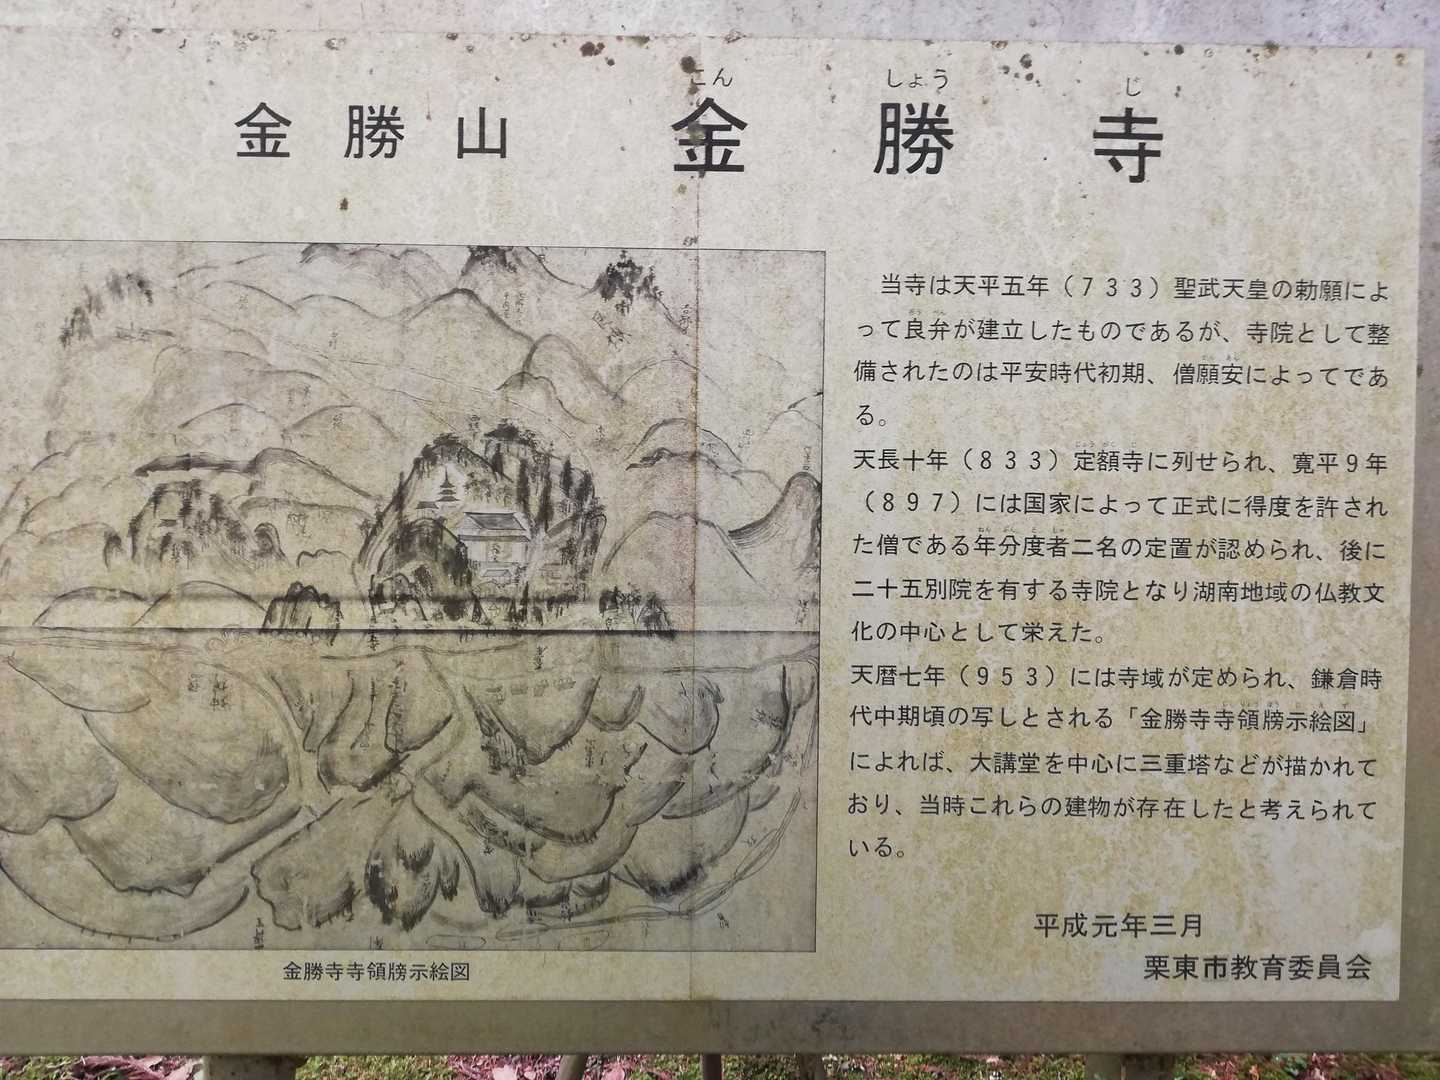 金勝山 金勝寺
こん しょう じ
当寺は天平五年（733）聖武天皇の勅願によ
って良弁が建立したものであるが、寺院として整
備されたのは平安時代初期、僧願安によってであ
る。
天長十年（833）定額寺に列せられ、寛平9年
（897）には国家によって正式に得度を許され
た僧である年分度者二名の定置が認められ、後に
二十五別院を有する寺院となり湖南地域の仏教文
化の中心として栄えた。
天暦七年（953）には寺域が定められ、鎌倉時
代中期頃の写しとされる「金勝寺寺領牓示絵図」
によれば、大講堂を中心に三重塔などが描かれて
おり、当時これらの建物が存在したと考えられて
いる。
平成元年三月
栗東市教育委員会
金勝寺寺領牓示絵図